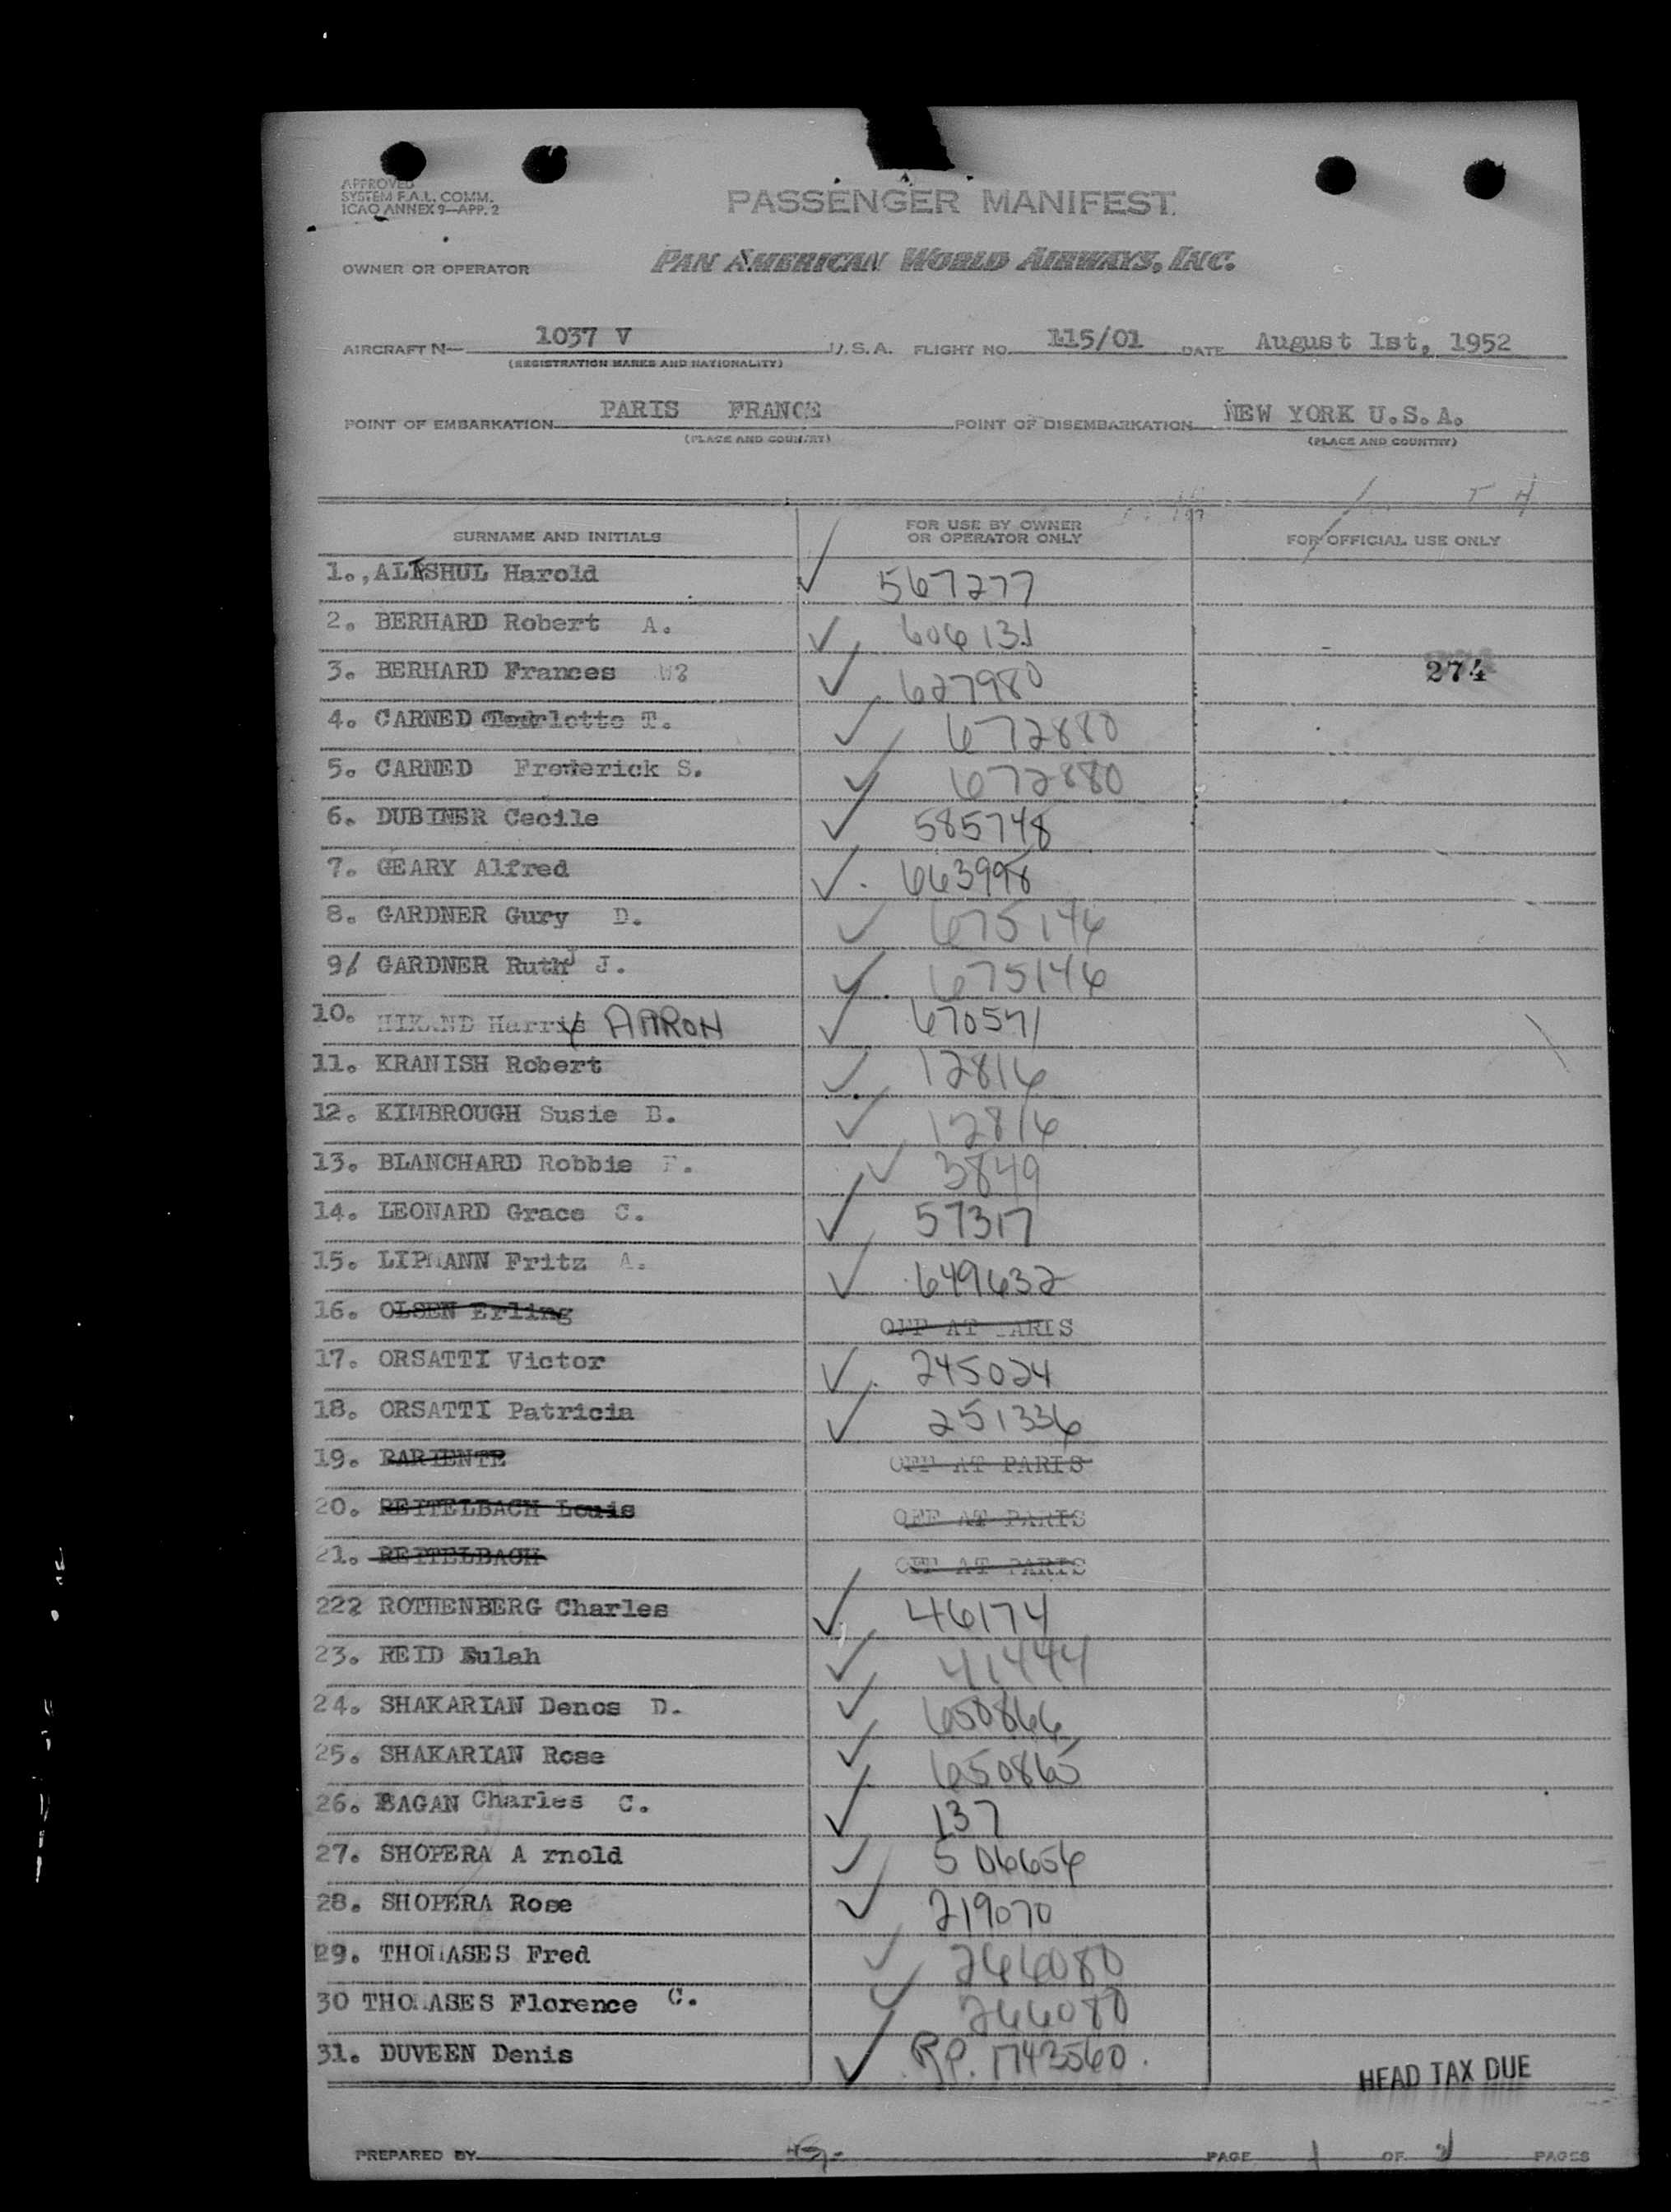 APPROVED
SYSTEM F.A.L. COMM.
ICAO ANNEX 9—APP. 2
PASSENGER MANIFEST
OWNER OR OPERATOR PAN AMERICAN WORLD AIRWAYS, INC.
AIRCRAFT N— 1037 V U.S.A. FLIGHT NO. 115/01 DATE August 1st, 1952
(REGISTRATION MARKS AND NATIONALITY)
POINT OF EMBARKATION PARIS FRANCE POINT OF DISEMBARKATION NEW YORK U.S.A.
(PLACE AND COUNTRY) (PLACE AND COUNTRY)
SURNAME AND INITIALS FOR USE BY OWNER OR OPERATOR ONLY FOR OFFICIAL USE ONLY
1., ALTSHUL Harold 567277
2. BERHARD Robert A. 606131
3. BERHARD Frances W? 627980 274
4. CARNED T. 672880
5. CARNED Frederick S. 672880
6. DUBINER Cecile 585748
7. GEARY Alfred 663998
8. GARDNER Gury D. 675146
9/ GARDNER Ruth J. 675146
10. HIKAND Harry AARON 670571
11. KRANISH Robert 12816
12. KIMBROUGH Susie B. 12816
13. BLANCHARD Robbie F. 3849
14. LEONARD Grace C. 57317
15. LIPMANN Fritz A. 649632
16. OLSEN Erling OFF AT PARIS
17. ORSATTI Victor 245024
18. ORSATTI Patricia 251336
19. PARIENTE OFF AT PARIS
20. REITELBACH Louis OFF AT PARIS
21. REITELBACH OFF AT PARIS
222 ROTHENBERG Charles 46174
23. REID Eulah 41444
24. SHAKARIAN Denos D. 650866
25. SHAKARIAN Rose 650865
26. SAGAN Charles C. 137
27. SHOPERA A rnold 506656
28. SHOPERA Rose 219070
29. THOMASES Fred 266080
30 THOMASES Florence C. 266080
31. DUVEEN Denis R.P. 1743560.
HEAD TAX DUE
PREPARED BY PAGE 1 OF PAGES